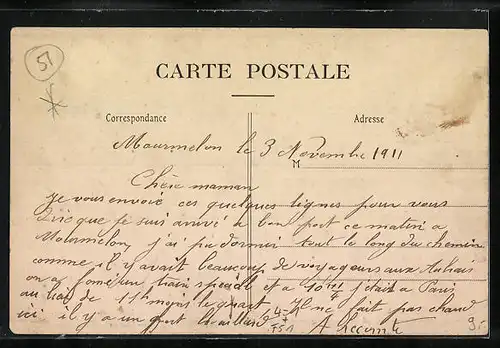 51
CARTE POSTALE
Correspondance
Adresse
Mourmelon le 3 Novembre 1911
M
Chère maman
je vous envoie ces quelques lignes pour vous
dire que je suis arrivé a bon port ce matin a
Mourmelon, j'ai pu dormir tout le long du chemin
comme il y avait beaucoup de voyageurs aux
on a formé un train et a 10 h j'étais a Paris
au lieu de 11h moins le quart. Il ne fait pas chaud
ici il y a un fort brouillard
9.-